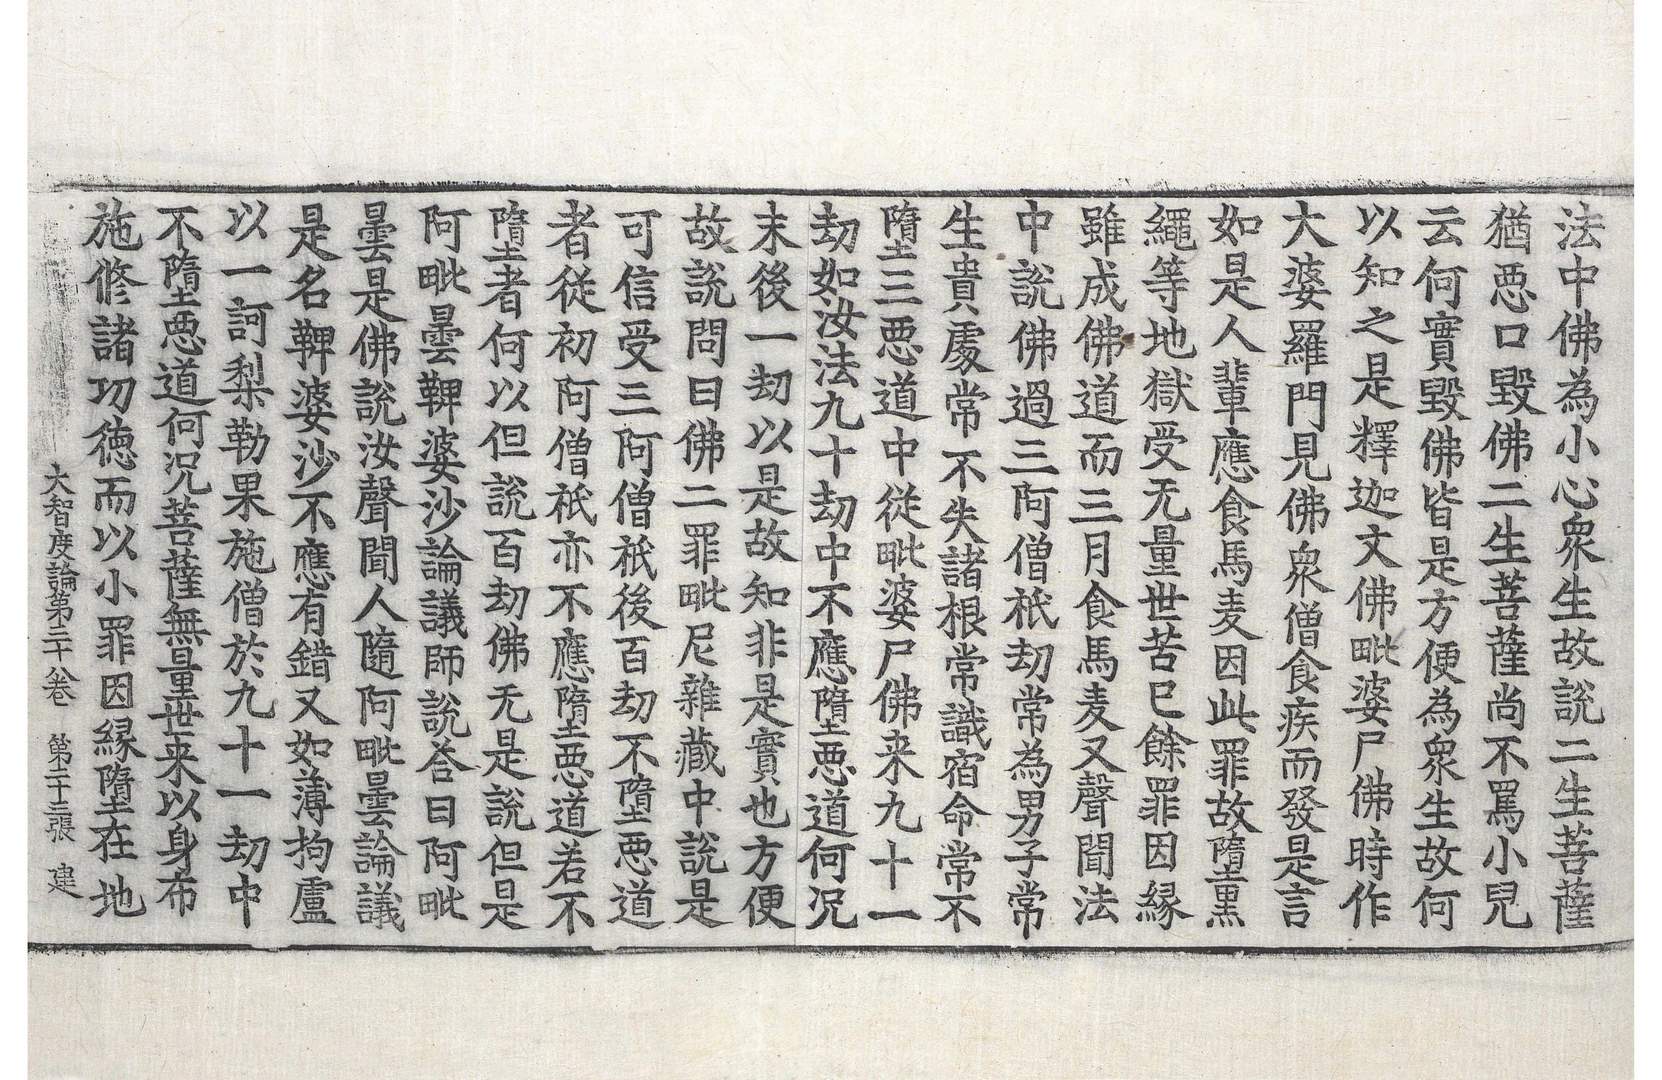 法中佛為小心衆生故說二生菩薩
猶惡口毀佛二生菩薩尚不罵小兒
云何實毀佛皆是方便為衆生故何
以知之是釋迦文佛毗婆尸佛時作
大婆羅門見佛衆僧食疾而發是言
如是人輩應食馬麦因此罪故墮黑
繩等地獄受无量世苦已餘罪因緣
雖成佛道而三月食馬麦又聲聞法
中說佛過三阿僧祇劫常為男子常
生貴處常不失諸根常識宿命常不
墮三惡道中從毗婆尸佛来九十一
劫如汝法九十劫中不應墮惡道何況
末後一劫以是故知非是實也方便
故說問曰佛二罪毗尼雜藏中說是
可信受三阿僧祇後百劫不墮惡道
者從初阿僧祇亦不應墮惡道若不
墮者何以但說百劫佛无是說但是
阿毗曇鞞婆沙論議師說荅曰阿毗
曇是佛說汝聲聞人隨阿毗曇論議
是名鞞婆沙不應有錯又如薄拘盧
以一訶梨勒果施僧於九十一劫中
不墮惡道何況菩薩無量世来以身布
施修諸功德而以小罪因緣墮在地
大智度論第三十八卷 第二十三張 建